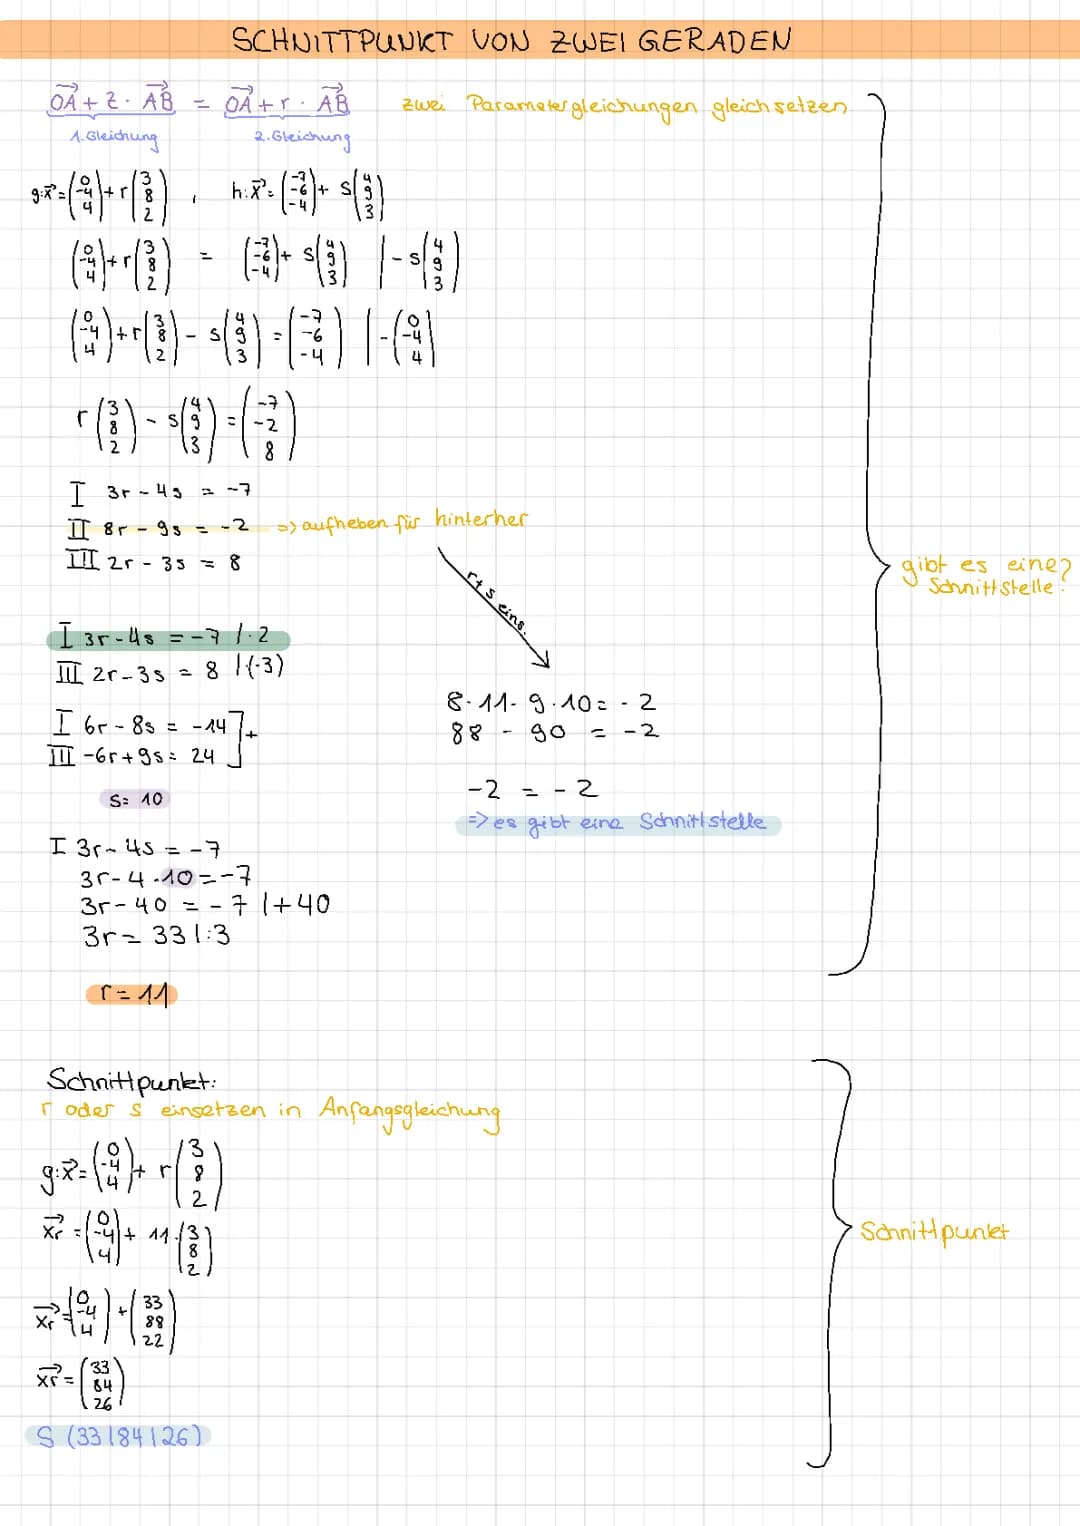 SCHNITTPUNKT VON ZWEI GERADEN
OA + z · AB = OA + r · AB zwei Parametergleichungen gleichsetzen
1. Gleichung 2. Gleichung
g: x = (0 -4 4) + r (3 8 2) , h: x = (-7 -6 -4) + s (4 9 3)
(0 -4 4) + r (3 8 2) = (-7 -6 -4) + s (4 9 3) | - s (4 9 3)
(0 -4 4) + r (3 8 2) - s (4 9 3) = (-7 -6 -4) | - (0 -4 4)
r (3 8 2) - s (4 9 3) = (-7 -2 8)
I 3r - 4s = -7
II 8r - 9s = -2 => aufheben für hinterher
III 2r - 3s = 8
r + s eins.
gibt es eine Schnittstelle?
I 3r - 4s = -7 | · 2
III 2r - 3s = 8 | (-3)
I 6r - 8s = -14 ] +
III -6r + 9s = 24
s = 10
8 · 11 - 9 · 10 = -2
88 - 90 = -2
-2 = -2
=> es gibt eine Schnittstelle
I 3r - 4s = -7
3r - 4 · 10 = -7
3r - 40 = -7 | +40
3r = 33 | :3
r = 11
Schnittpunkt:
r oder s einsetzen in Anfangsgleichung
g: x = (0 -4 4) + r (3 8 2)
xr = (0 -4 4) + 11 · (3 8 2)
Schnittpunkt
xr = (0 -4 4) + (33 88 22)
xr = (33 84 26)
S (33|84|26)